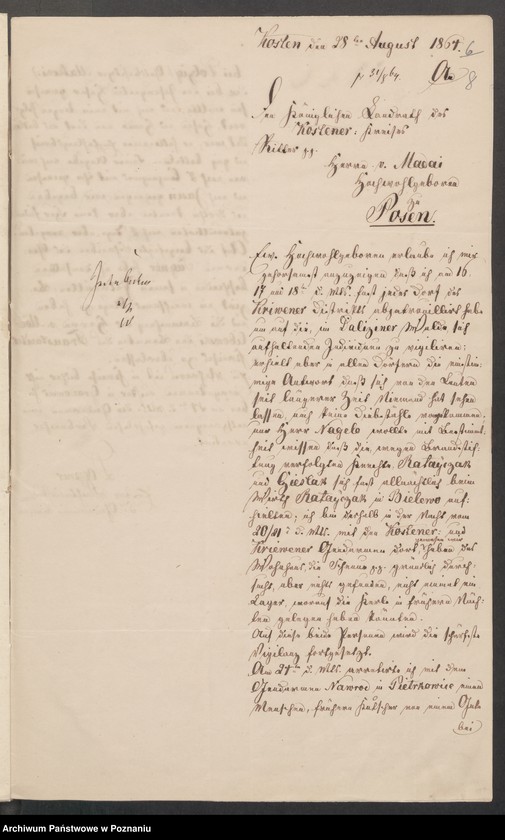 Kosten den 28ten August 1864.
6
p 31/8 64.
An
8
Den Königlichen Landrath des
Kostener Kreises
Ritter pp.
Herrn v. Madai
Hochwohlgeboren
zu
Posen.
Ew. Hochwohlgeboren erlaube ich mir
gehorsamst anzuzeigen daß ich am 16.
17 und 18t d. Mts. fast jedes Dorf des
Kriewener Distrikts abpatrouillirt habe
um auf die, im Walde sich
aufhaltenden Individuen zu vigiliren;
erhielt aber in allen Dörfern die einstim-
mige Antwort daß sich von den Leuten
seit längerer Zeit Niemand hat sehen
lassen, auch keine Diebstähle vorgekommen.
nur Herr Nagelo wollte mit Bestimmt-
heit wissen daß die, wegen Brandstif-
tung verfolgten Knechte, Ratayczak
und Cieslak sich fast allnächtlich beim
Wirth Ratayczak in Bielewo auf-
halten; ich bin deshalb in der Nacht vom
20/21 t d. Mts. mit den Kostener und
Kriewener Gendarmen dort, haben das
Wohnhaus, die Scheune pp. gründlich durch-
sucht, aber nichts gefunden, nicht einmal ein
Lager, worauf die Kerle in frühern Näch-
ten gelegen haben könnten.
Auf diese beide Personen wird die schärfste
Vigilanz fortgesetzt.
Am 24t d. Mts. arretirte ich mit dem
Gendarmen Nawroc in Pietrkowice einen
Menschen, frühern Kutscher von einem Guts-
bei
Archiwum Państwowe w Poznaniu